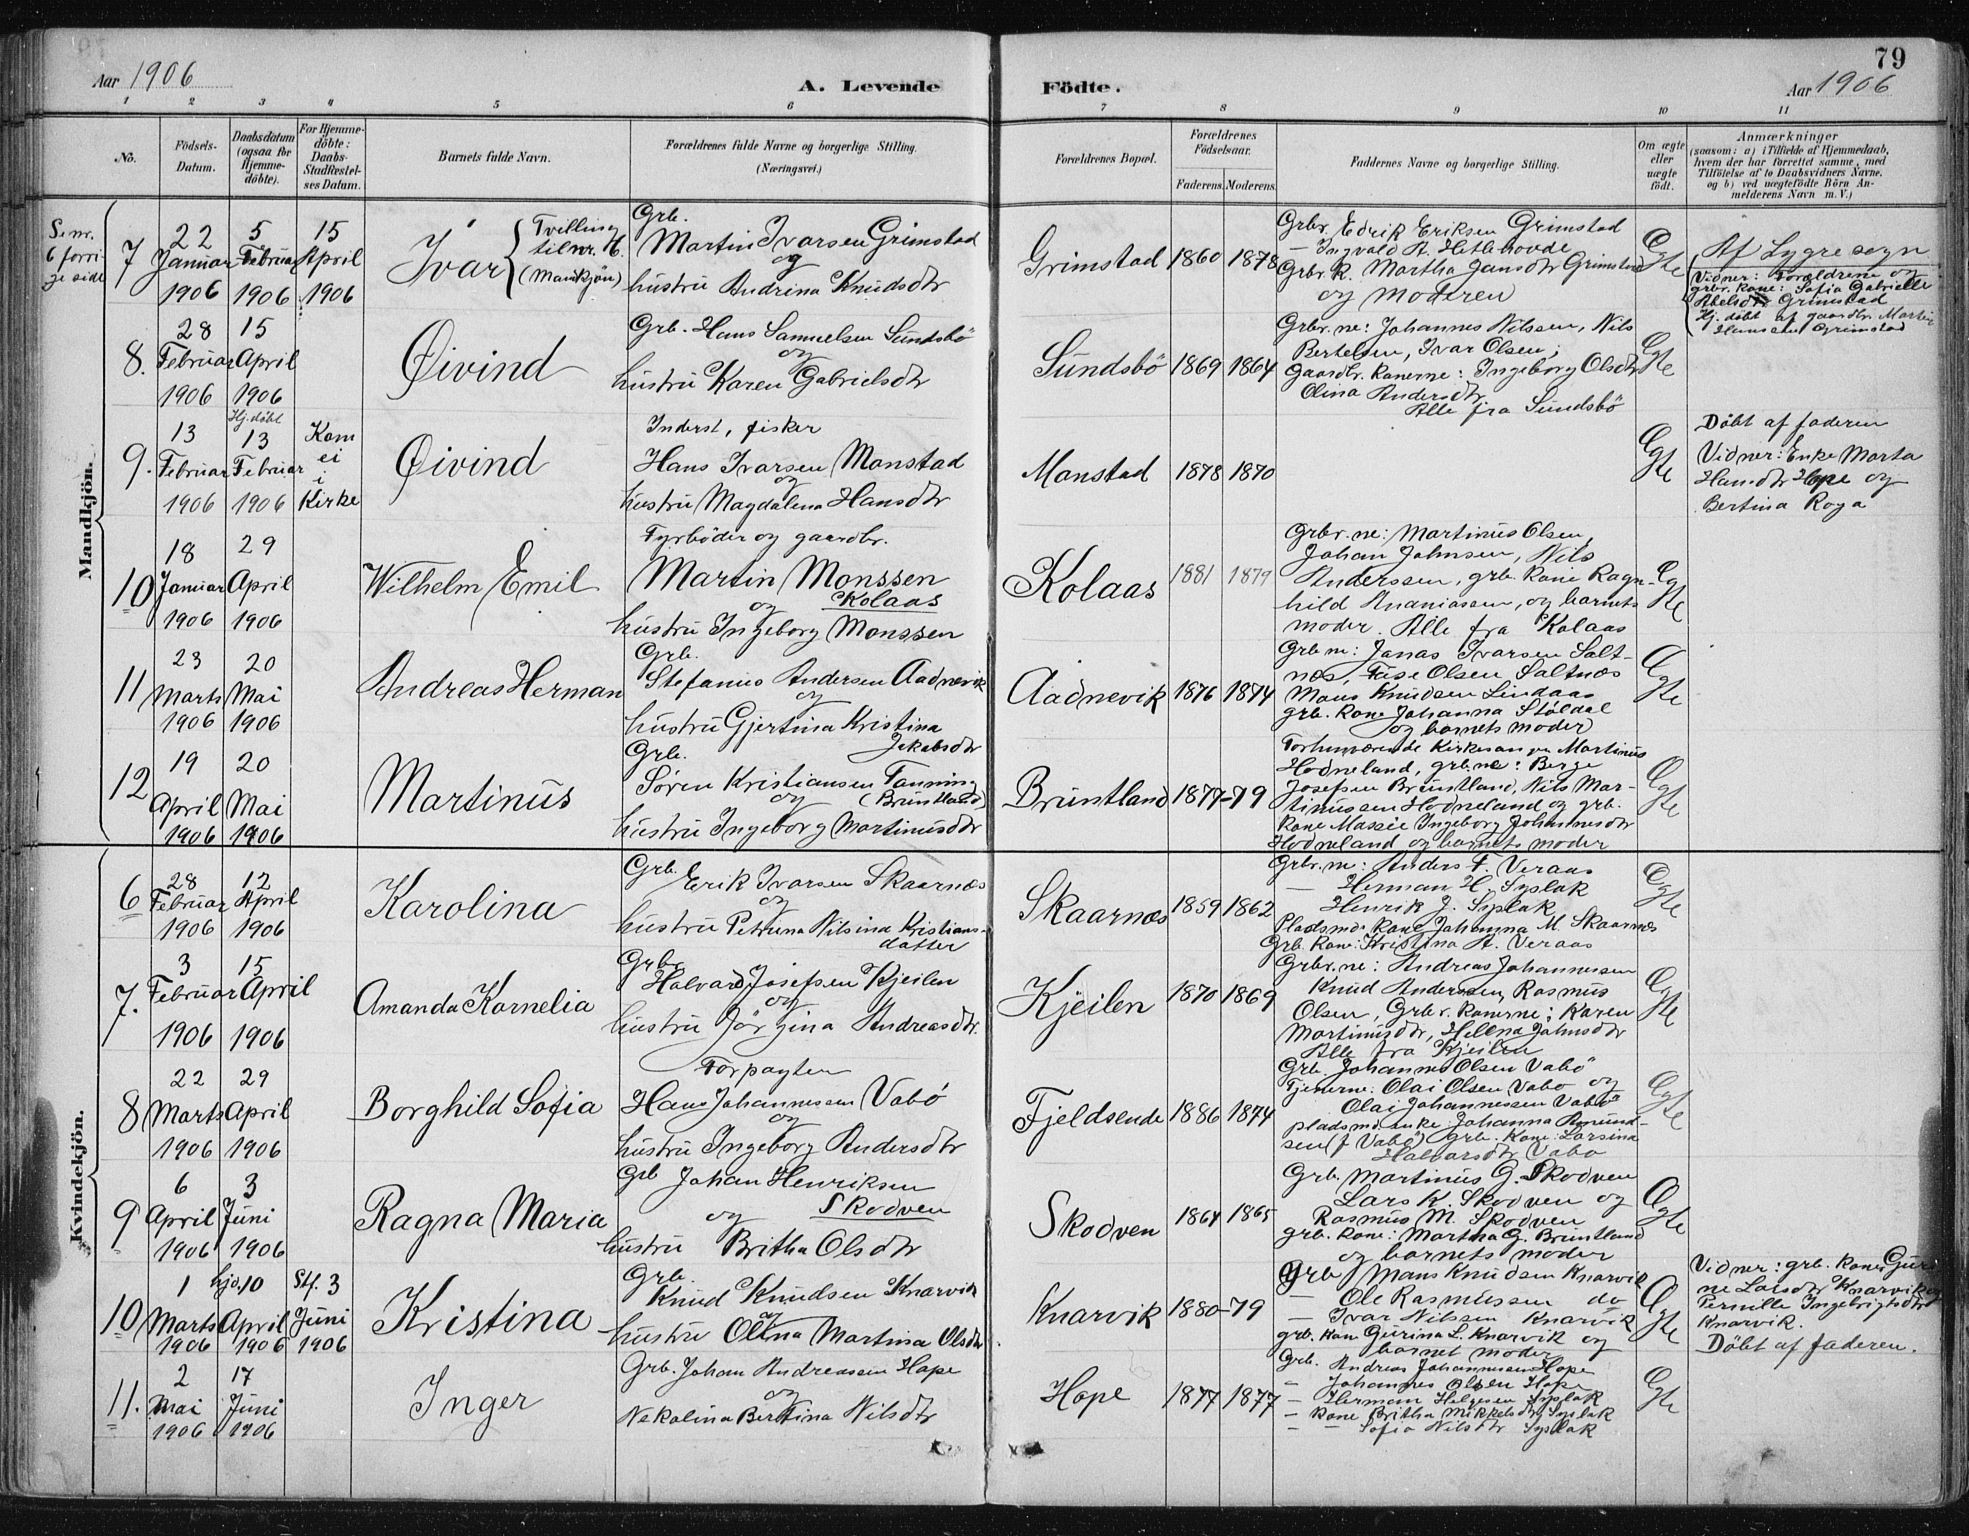 79
Aar 1906
A. Levende
Födte.
Aar 1906
1 2 3 4 5 6 7 8 9 10 11
No.
Födsels-
Datum.
Daabsdatum
(ogsaa for
Hjemme-
döbte).
For Hjemme-
döbte:
Daabs-
Stadfæstel-
ses Datum.
Barnets fulde Navn.
Forældrenes fulde Navne og borgerlige Stilling.
(Næringsvei.)
Forældrenes Bopæl.
Forældrenes
Födselsaar.
Faderens. Moderens.
Faddernes Navne og borgerlige Stilling.
Om ægte
eller
uægte
födt.
Anmærkninger
(saasom: a) i Tilfælde af Hjemmedaab,
hvem der har forrettet samme, med
Tilföielse af to Daabsvidners Navne.
og b) ved uægtefödte Börn An-
melderens Navn m. V.)
Mandkjön.
Se nr.
6 forri-
ge side
7
22
Januar
1906
5
Februar
1906
15
April
1906
Ivar
Tvilling
til nr. 6.
(Mankjön)
Grb.
Martin Ivarsen Grimstad
og
hustru Andrina Knudsdtr
Grimstad
1860 1878
Grbr. Edrik Eriksen Grimstad
— Ingvald A. Hetlebovde
Grbr. K. Martha Jansdtr Grimstad
og moderen
Egte
Af Lygre sogn
Vidner: Forældrene og
grbr. kone: Sofia Gabrielle
Abelsdtr Grimstad
Hj. döbt af gaardbr. Martin
Hansen Grimstad
8.
28
Februar
1906
15
April
1906
Øivind
Grb. Hans Samuelsen Sundsbö
og
hustru Karen Gabrielsdtr
Sundsbö
1869 1864
Grbr. ne: Johannes Nilssen, Nils
Bertelsen, Ivar Olsen;
Gaardbr. konerne: Ingeborg Olsdtr
Olina Andersdtr
Alle fra Sundsbö
Egte
9.
13
Februar
1906
Hj. döbt
13
Februar
1906
Kom
ei
i
Kirke
Øivind
Inderst, fisker
Hans Ivarsen Monstad
og
hustru Magdalena Hansdtr
Monstad
1878 1870
Egte
Döbt af faderen
Vidner: Enke Marta
Hansdtr Hope og
Bertina Roya
10
18
Januar
1906
29
April
1906
Wilhelm Emil
Fyrböder og gaardbr.
Martin Monssen
Kolaas
og
hustru Ingeborg Monssen
Kolaas
1881 1879
Grbr. ne: Martinus Olsen,
Johan Johnsen, Nils
Anderssen, grb. kone Ragn-
hild Ananiassen, og barnets
moder. Alle fra Kolaas
Egte
11
23
Marts
1906
20
Mai
1906
Andreas Herman
Grb.
Stefanus Andersen Aadnevik
og
hustru Gjertina Kristina
Jakobsdtr
Aadnevik
1876 1874
Grb ne: Janas Ivarsen Salt-
næs, Fase Olsen Saltnæs
Mons Knudsen Lindaas
grb. kone Johanna Stöldal
og barnets moder
Egte
12
19
April
1906
20
Mai
1906
Martinus
Grb.
Søren Kristiansen Tanning
(Bruntland)
og
hustru Ingeborg Martinusdtr
Bruntland
1877-79
Forhenværende Kirkesanger Martinus
Hodneland, grb. ne: Berge
Josefsen Bruntland, Nils Mar-
tinussen Hodneland og grb.
kone Massie Ingeborg Johannesdtr
Hodneland og barnets moder
Egte
Kvindekjön.
6
28
Februar
1906
12
April
1906
Karolina
Grb.
Erik Ivarsen Skaarnæs
og
hustru Petrina Nilsina Kristians-
datter
Skaarnæs
1859 1862
Grbr. ne: Anders F. Veraas
— Herman H. Syslak
Henrik J. Syslak
Pladsmd. kone Johanna M. Skaarnæs
Grb. kone: Kristina A. Veraas
Egte
7.
3
Februar
1906
15
April
1906
Amanda Kornelia
Grb.
Halvard Josefsen Kjeilen
og
hustru Jörgina Andreasdtr.
Kjeilen
1870 1869
Grbr. ne: Andreas Johannessen
Knud Anderssen, Rasmus
Olsen, Grbr. konerne: Karen
Martinusdtr, Hellena Johnsdtr
Alle fra Kjeilen
Egte
8
22
Marts
1906
29
April
1906
Borghild Sofia
Forpagter
Hans Johannessen Vabö
og
hustru Ingeborg Andersdtr
Fjeldsende
1886 1874
Grb. Johannes Olsen Vabö
Tjenerne: Olai Olsen Vabö og
Olai Johannessen Vabö
pladsmd. enke Johanna Amund-
sen (f Vabö) grb. kone: Larsina
Halvorsdtr Vabö
Egte
9
6
April
1906
3
Juni
1906
Ragna Maria
Grb Johan Henriksen
og Skodven
hustru Britha Olsdtr
Skodven
1864 1865
Grb. Martinus G. Skodven
Lars K. Skodven og
Rasmus M. Skodven
grb. kone: Martha G. Bruntland
og barnets moder
Egte
10
1
Marts
1906
hjd. 10
April
1906
Stf. 3
Juni
1906
Kristina
Grb.
Knud Knudsen Knarvik
og
hustru Olina Martina Olsdtr
Knarvik
1880-79
Grb Mans Knudsen Knarvik
— Ole Rasmussen do
— Ivar Nilsen Knarvik
grb. kone Gurina L. Knarvik og
barnet moder
Egte
Vidner: grb. koner Guri-
ne Larsdtr Knarvik og
Pernille Ingebrigtsdtr
Knarvik.
Döbt af faderen.
11.
2
Mai
1906
17
Juni
1906
Inger
Grb. Johan Andreassen Hope
og
Nekolina Bertina Nilsdtr
Hope
1877 1877
Grb. Andreas Johannessen Hope
— Johannes Olsen Hope
— Herman Helgesen Syslak
— kone Britha Mikkelsdtr Syslak
— — Sofia Nilsdtr Syslak
Egte